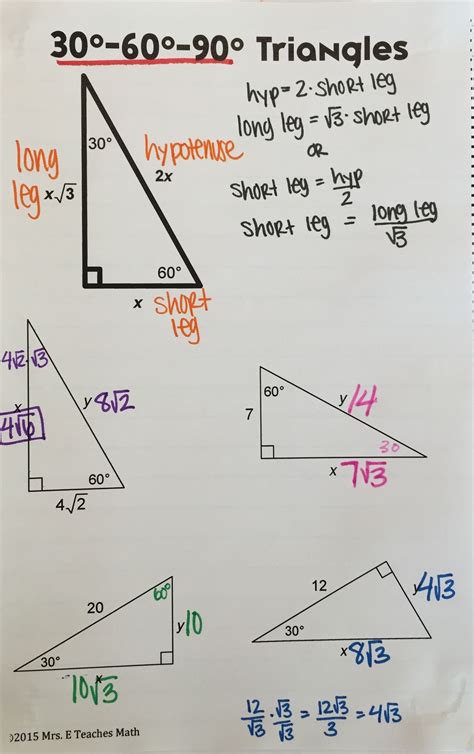 30°-60°-90° Triangles
hyp = 2·short leg
long leg = √3·short leg
OR
short leg = hyp/2
short leg = long leg/√3
long leg
x√3
30°
hypotenuse
2x
60°
x
short leg
4√2·√3
x
4√6
y
8√2
60°
4√2
60°
7
y
14
30
x
7√3
20
60°
y
10
30°
x
10√3
12
y
4√3
30°
x
8√3
12/√3 · √3/√3 = 12√3/3 = 4√3
©2015 Mrs. E Teaches Math